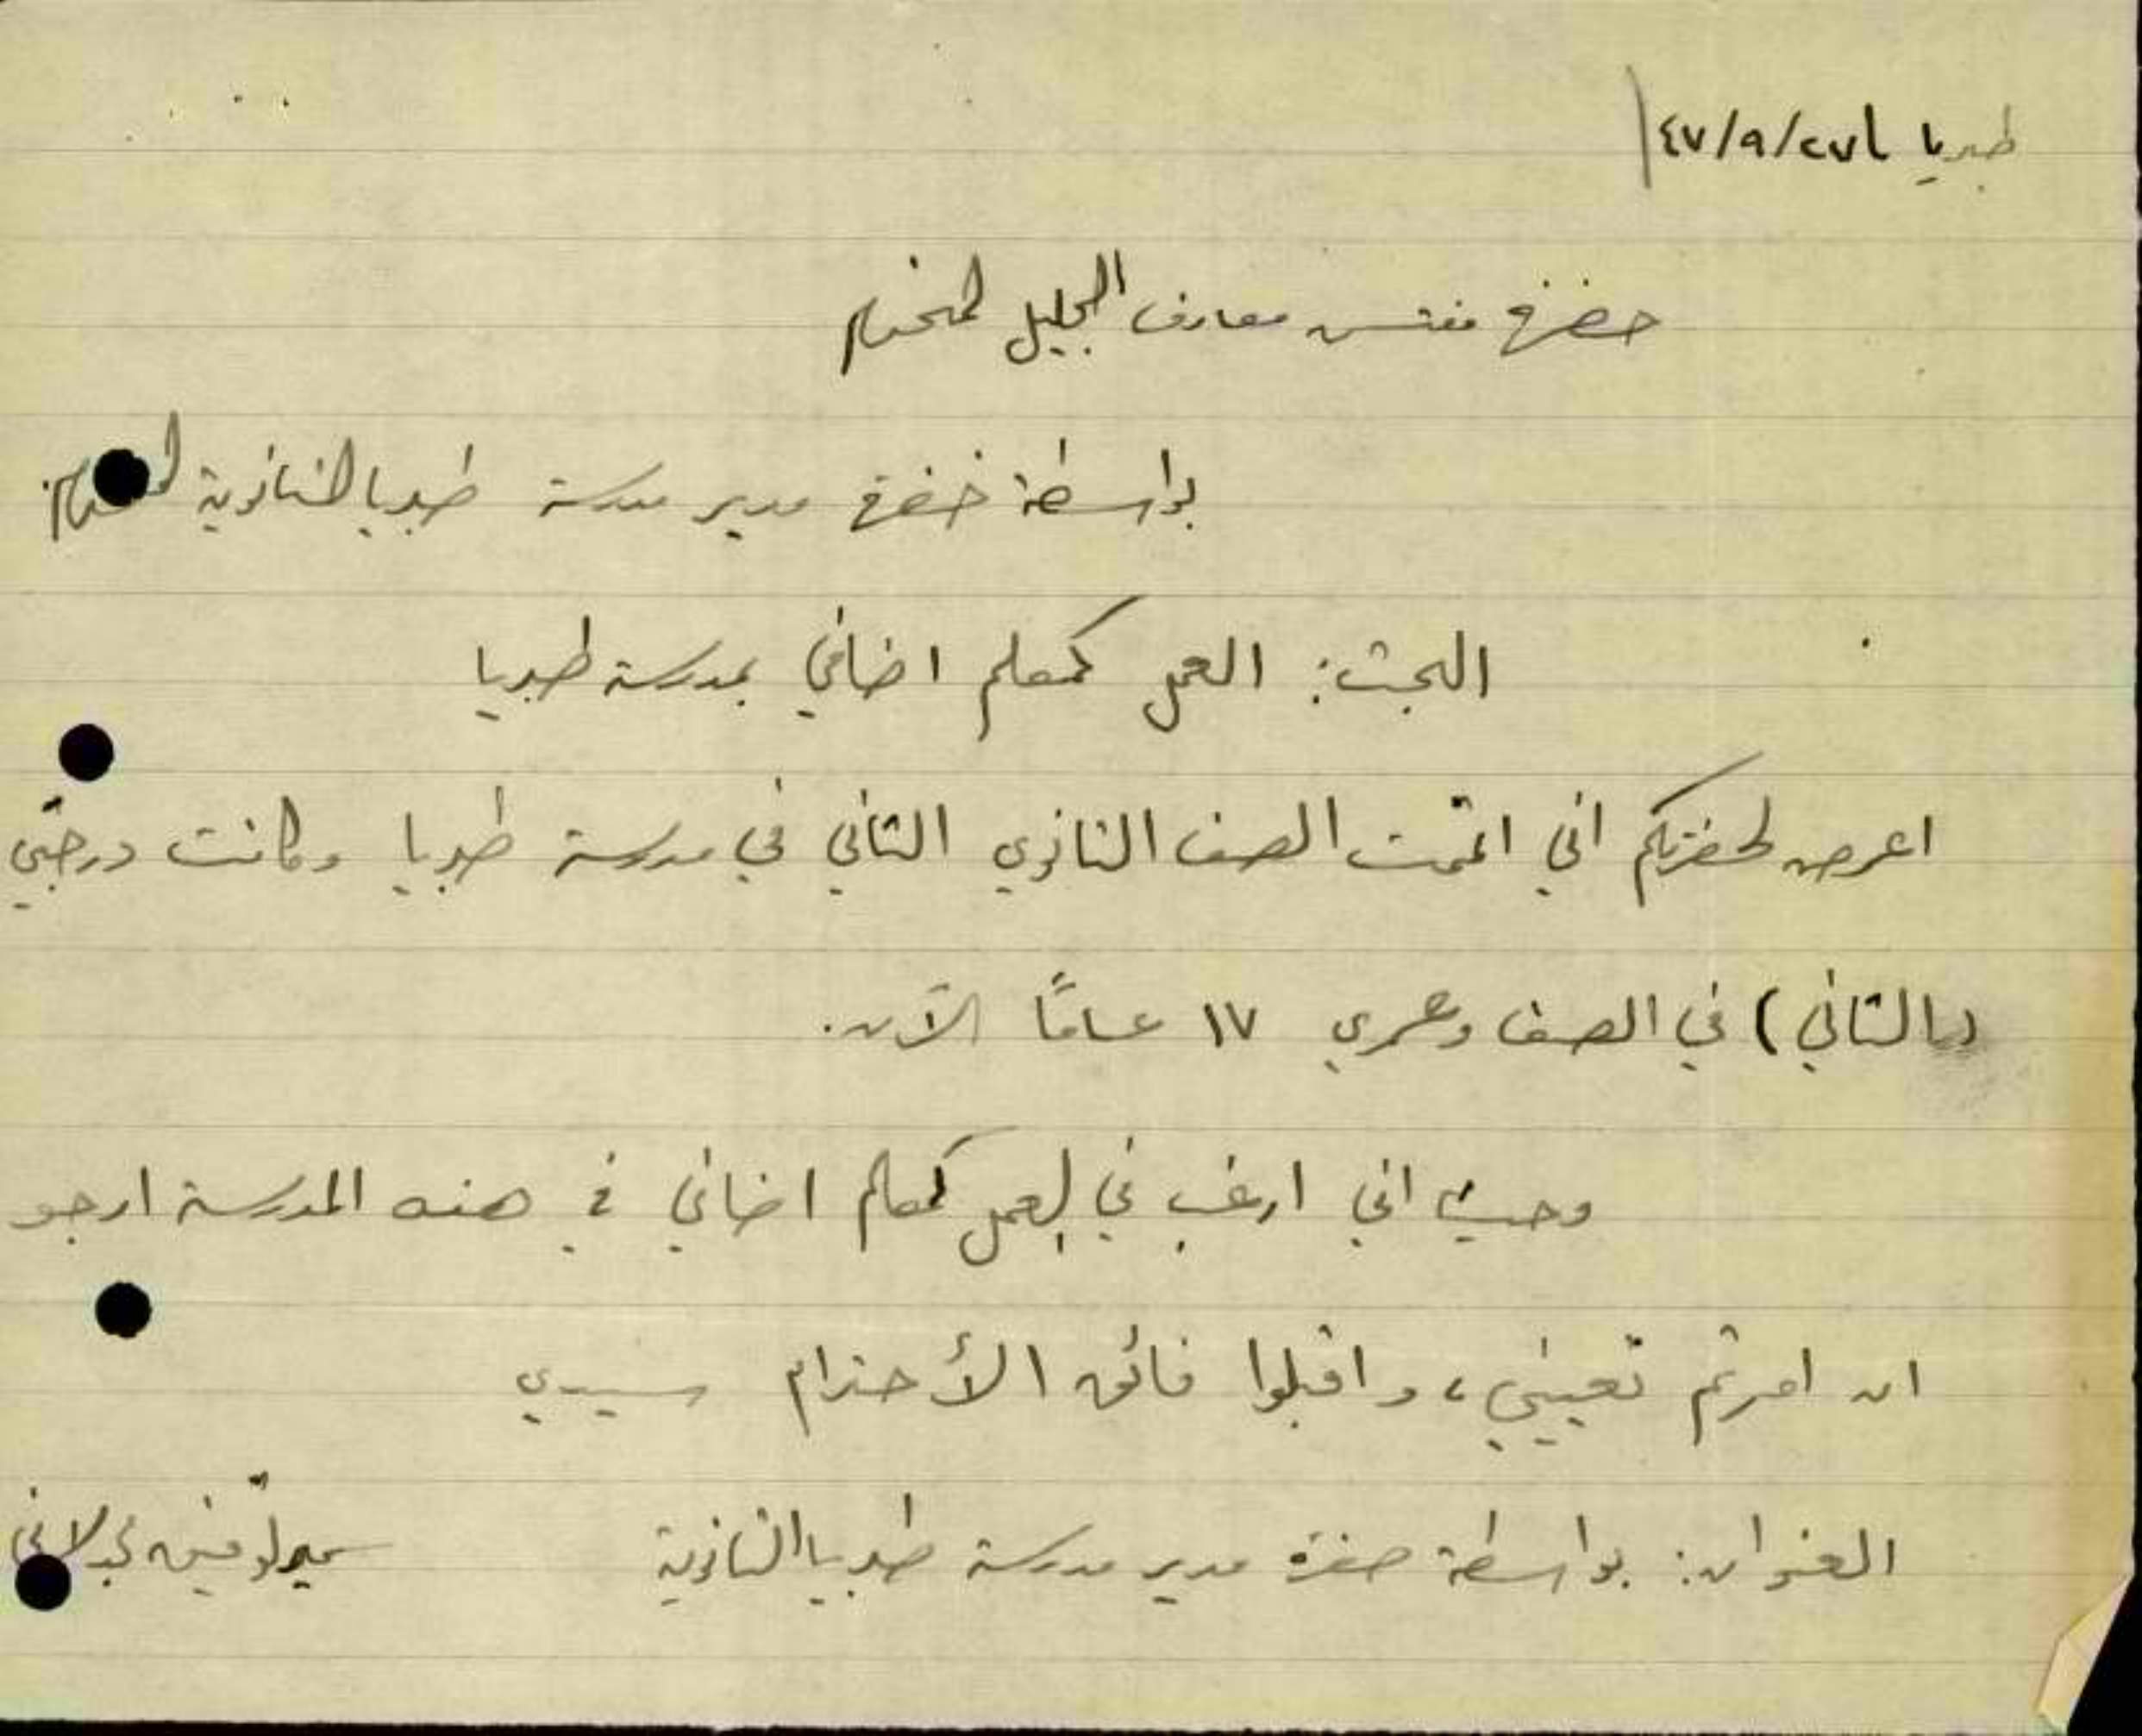 طبريا ٤٧/٩/٢٧
حضرة مفتش معارف الجليل المحترم
بواسطة حضرة مدير مدرسة طبريا الثانوية المحترم
البحث: العمل كمعلم اضافي بمدرسة طبريا
اعرض لحضرتكم اني اتممت الصف الثانوي الثاني في مدرسة طبريا وكانت درجتي
(الثاني) في الصف وعمري ١٧ عامًا الآن.
وحيث اني ارغب في العمل كمعلم اضافي في هذه المدرسة ارجو
ان امرتم تعييني، واقبلوا فائق الأحترام سيدي
العنوان: بواسطة حضرة مدير مدرسة طبريا الثانوية